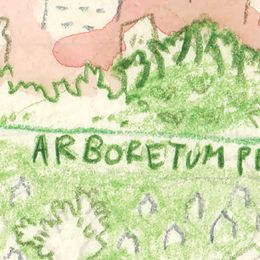 ARBORETUM PE